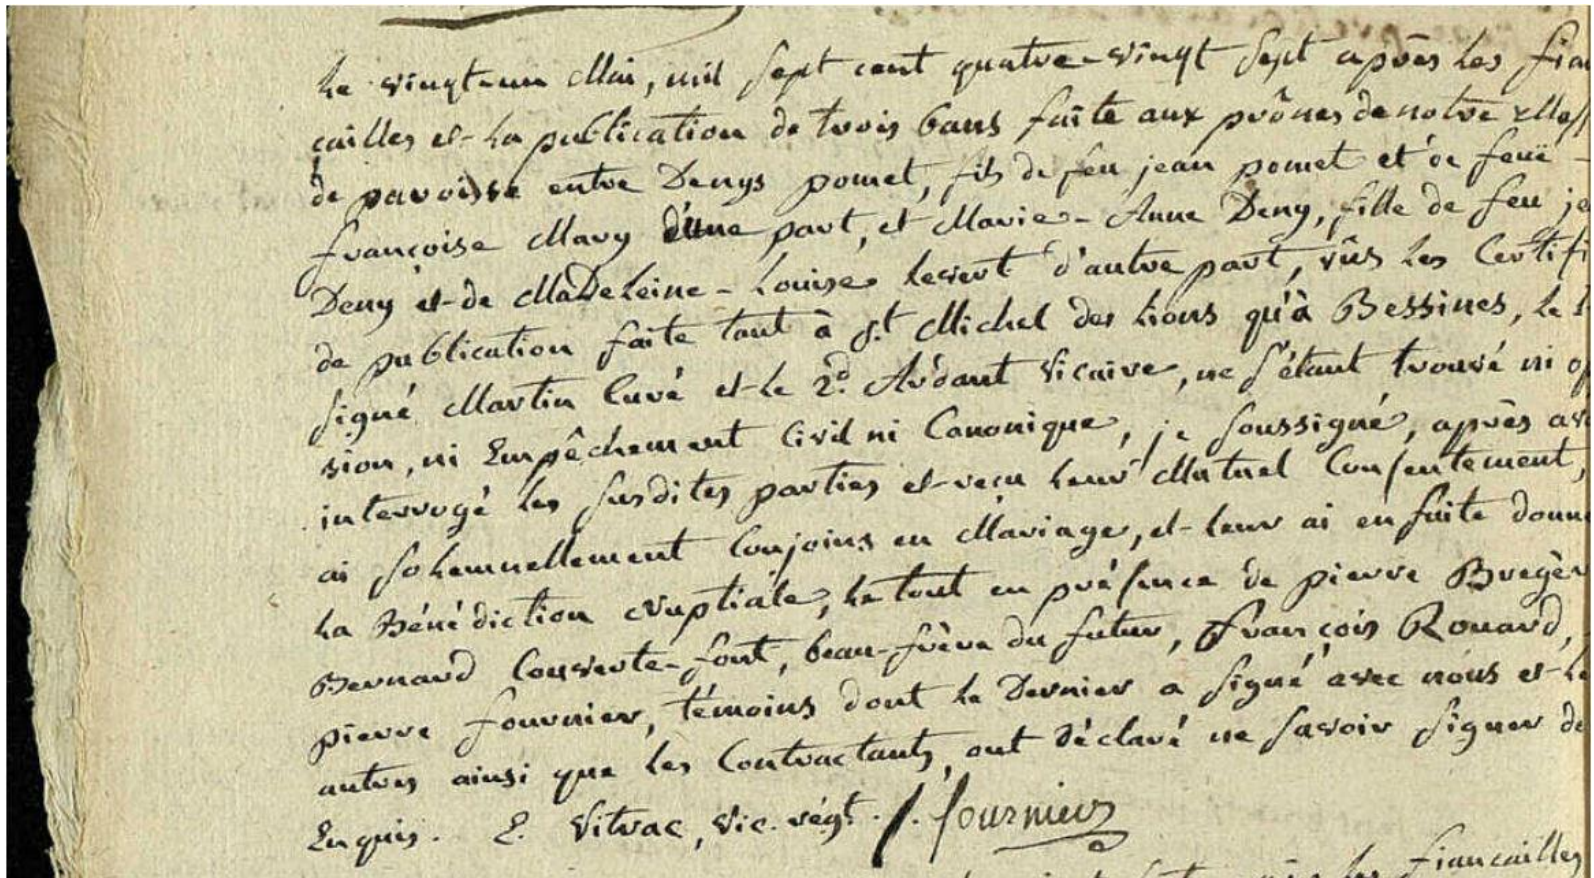 Le vingt-un Mai, mil sept cent quatre-vingt sept après les fian
çailles et la publication de trois bans faite aux prônes de notre Mess
de paroisse entre Denys pomet, fils de feu jean pomet et de feüe
françoise Mary d'une part, et Marie-Anne Deny, fille de feu je
Deny et de Madeleine-Louise Levert d'autre part, vûs les Certifi
de publication faite tant à St Michel des Lions qu'à Bessines, le 1
signé Martin Curé et le 2d. Ardant Vicaire, ne s'étant trouvé ni op
sion, ni Empêchement Civil ni Canonique, je soussigné, après av
interrogé les susdites parties et reçu leur Mutuel Consentement,
ai solemnellement Conjoins en Mariage, et leur ai ensuite donné
la Bénédiction Nuptiale, le tout en présence de pierre Bregèr
Bernard Couverte-font, beau-frère du futur, françois Rouard,
pierre fournier, témoins dont le Dernier a signé avec nous et le
autres ainsi que les Contractants, ont déclaré ne savoir signer de
Enquis. E. Vitrac, vic. régt. P. fournier
les fiançailles